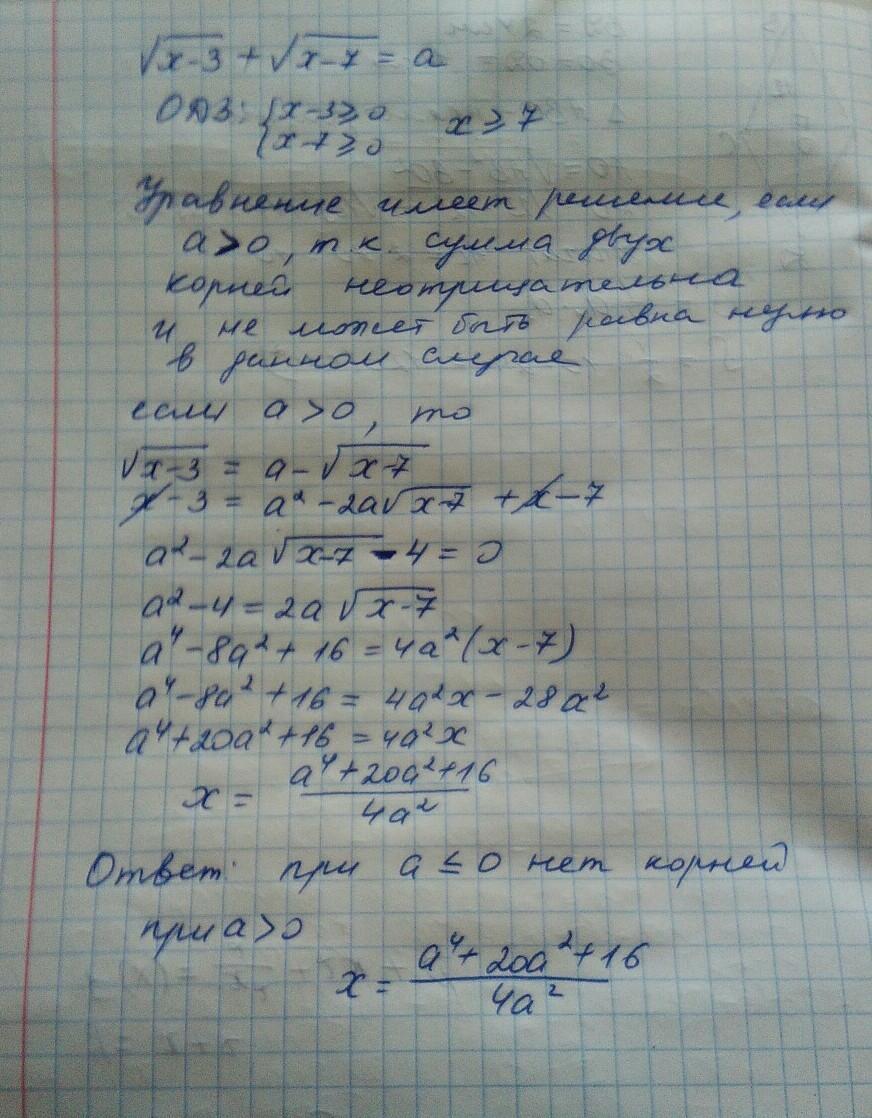 √x-3 + √x-7 = a
ОДЗ: {x-3≥0
{x-7≥0 x≥7
Уравнение имеет решение, если
a>0, т.к. сумма двух
корней неотрицательна
и не может быть равна нулю
в данном случае
если a>0, то
√x-3 = a-√x-7
x-3 = a²-2a√x-7 +x-7
a²-2a√x-7 -4=0
a²-4=2a√x-7
a⁴-8a²+16=4a²(x-7)
a⁴-8a²+16=4a²x-28a²
a⁴+20a²+16=4a²x
x= a⁴+20a²+16
4a²
Ответ: при a≤0 нет корней
при a>0
x= a⁴+20a²+16
4a²